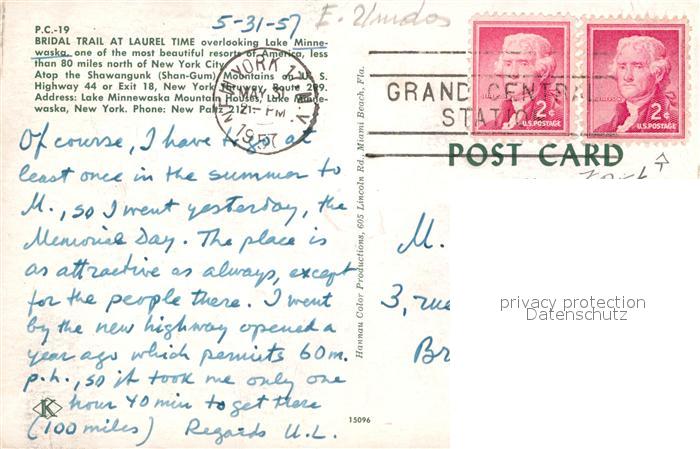 5-31-57
P.C.-19
BRIDAL TRAIL AT LAUREL TIME overlooking Lake Minne-
waska, one of the most beautiful resorts of America, less
than 80 miles north of New York City.
Atop the Shawangunk (Shan-Gum) Mountains on U. S.
Highway 44 or Exit 18, New York Thruway, Route 299.
Address: Lake Minnewaska Mountain Houses, Lake Minne-
waska, New York. Phone: New Paltz 2121
NEW YORK N.Y.
MAY 31
PM
1957
GRAND CENTRAL
STATION
2¢
U.S. POSTAGE
2¢
U.S. POSTAGE
POST CARD
Of course, I have to go at
least once in the summer to
M., so I went yesterday, the
Memorial Day. The place is
as attractive as always, except
for the people there. I went
by the new highway opened a
year ago which permits 60 m.
p.h., so it took me only one
hour 40 min to get there
(100 miles) Regards U.L.
K
15096
Hannau Color Productions, 605 Lincoln Rd., Miami Beach, Fla.
M.
3, rue
Br
privacy protection
Datenschutz